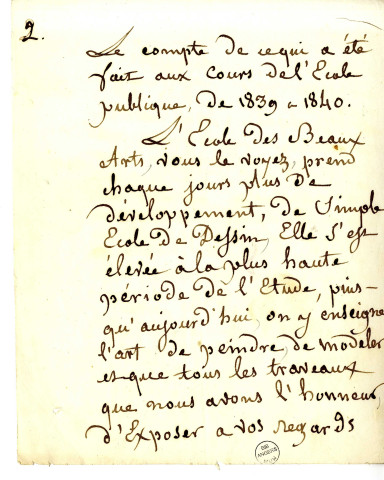 2.
Le compte de ce qui a été
fait aux cours de l'Ecole
publique, de 1839 a 1840.
L'Ecole des Beaux
Arts, vous le voyez, prend
chaque jours plus de
développement, de Simple
Ecole de Dessin, Elle s'est
élevée à la plus haute
période de l'Etude, puis-
qu'aujourd'hui, on y enseigne
l'art de peindre, de modeler
et que tous les traveaux
que nous avons l'honneur,
d'Exposer a vos regards